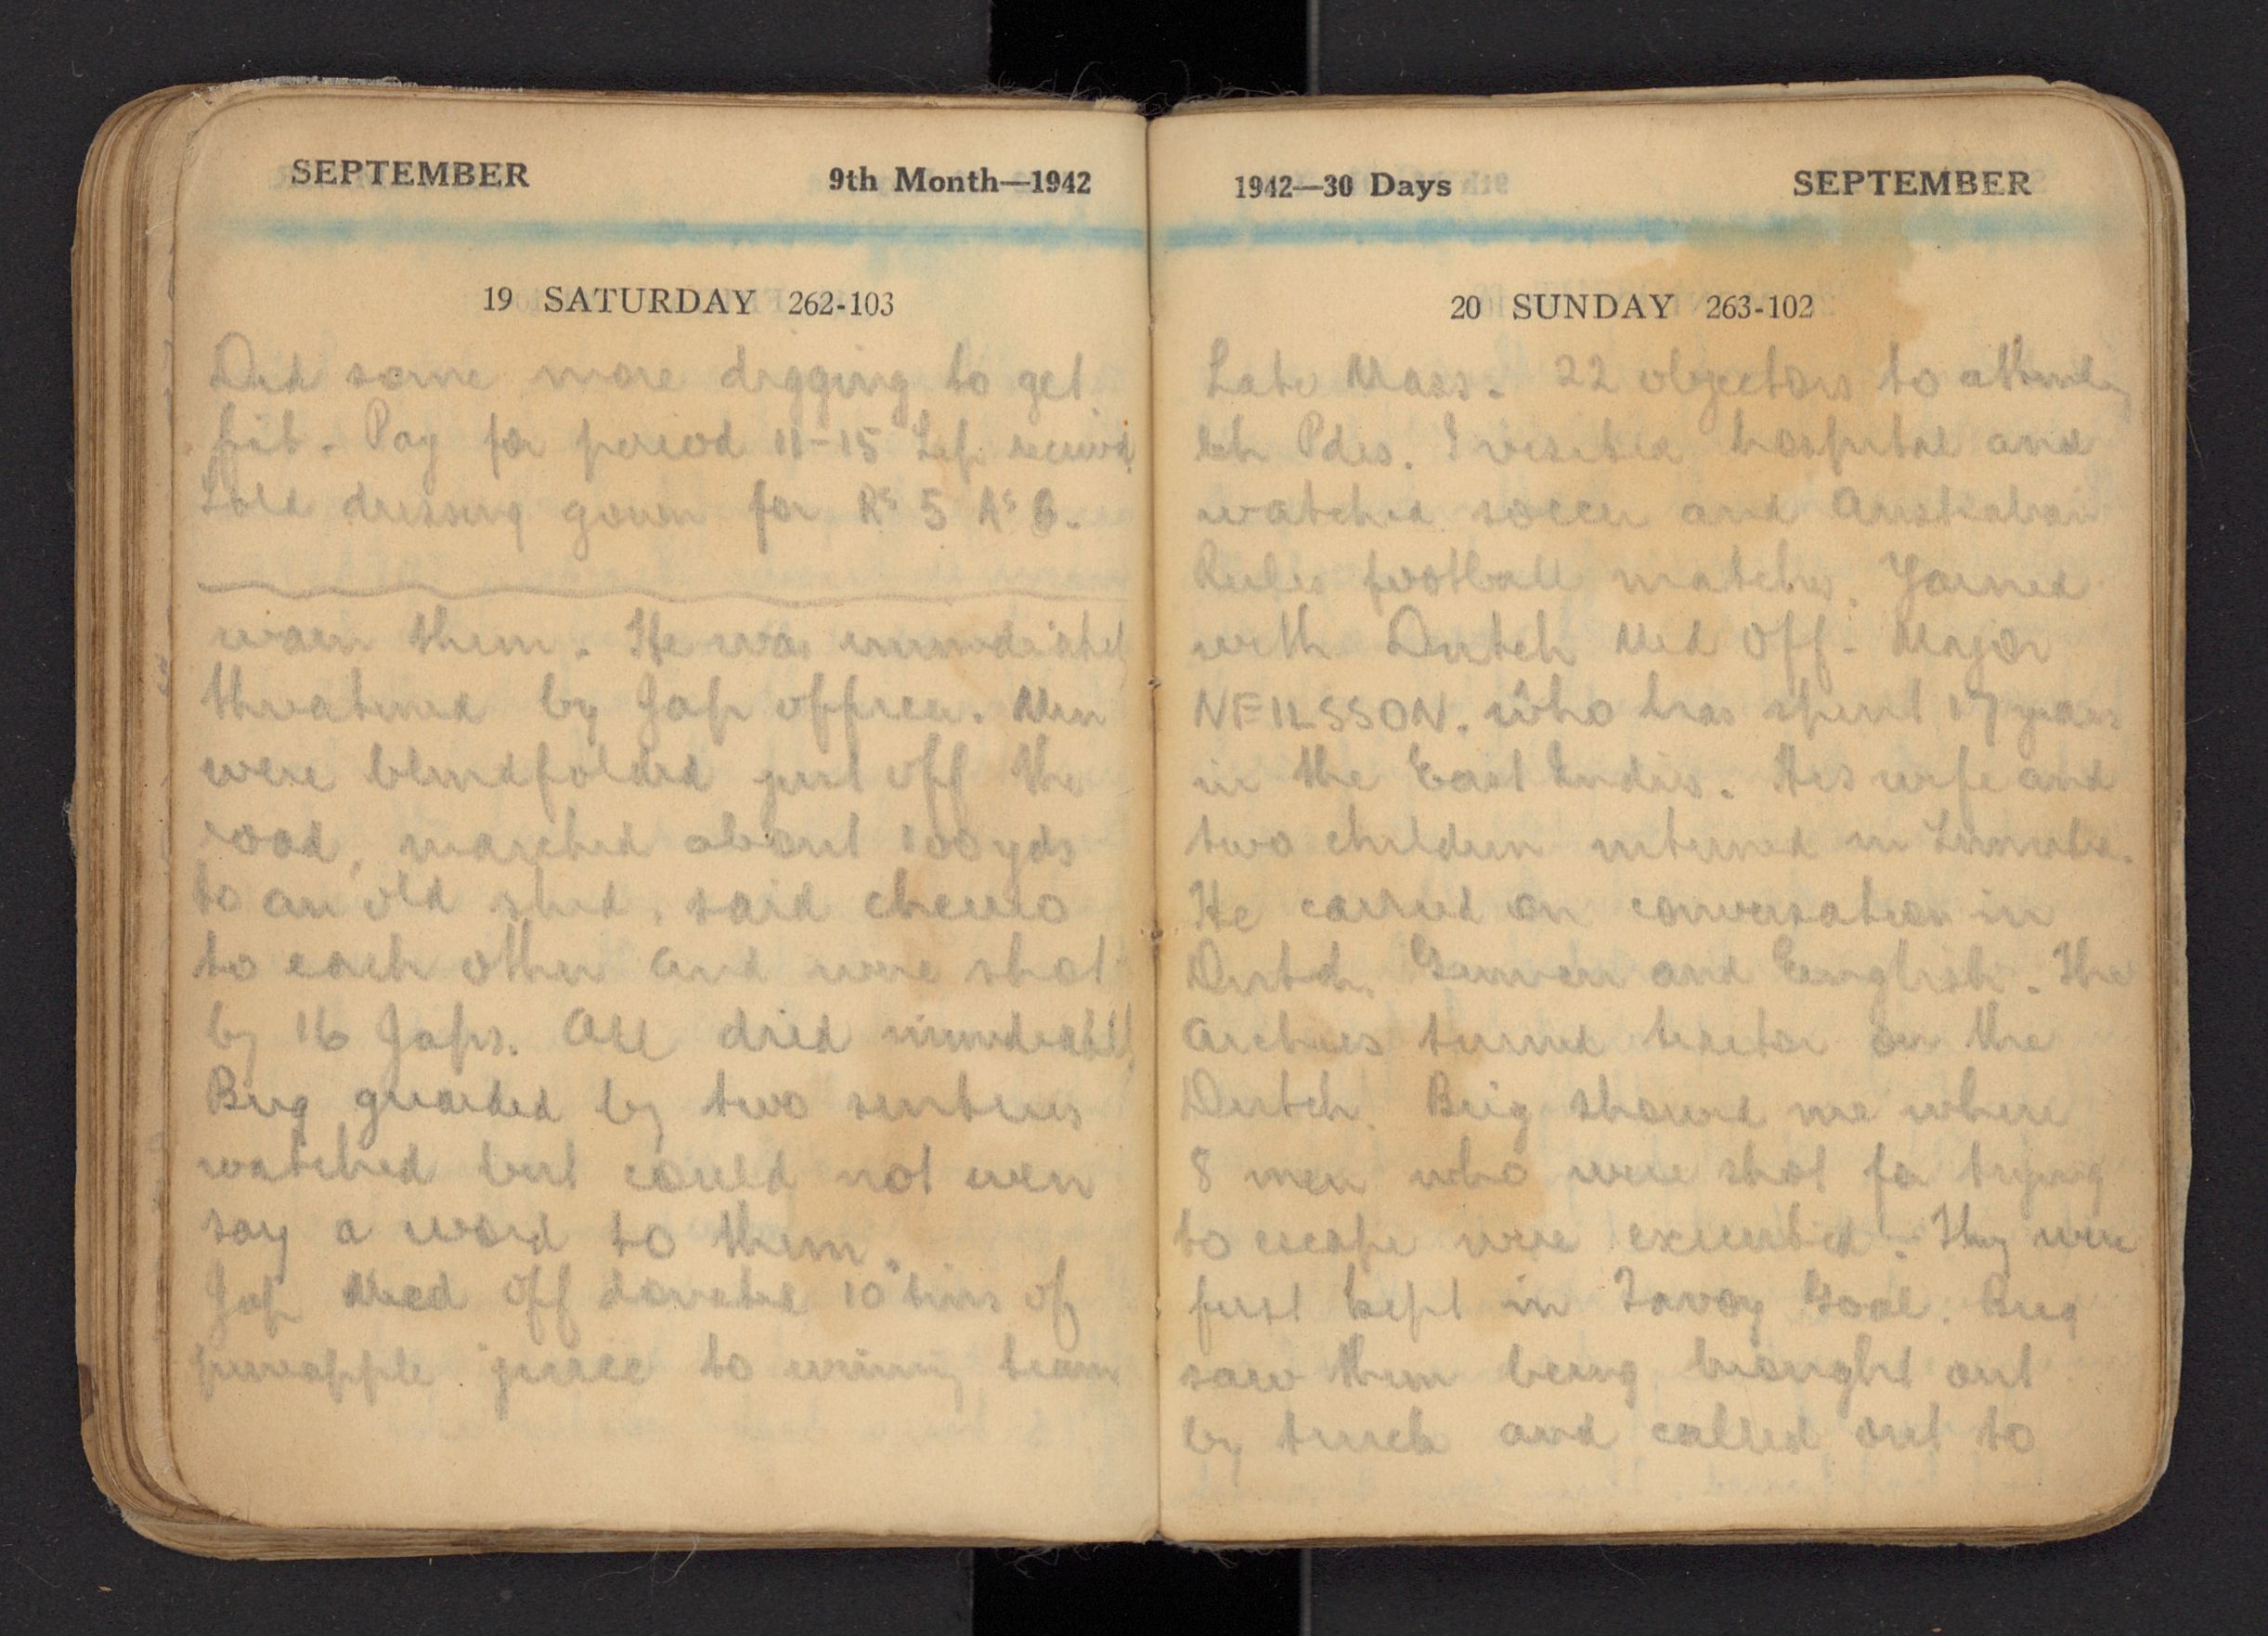 SEPTEMBER 9th Month—1942
19 SATURDAY 262-103
Did some more digging to get
fit. Pay for period 11-15 Sep. received
Sold dressing gown for Rs 5 As 8.
warn them. He was immediately
threatened by Jap officer. Men
were blindfolded just off the
road, marched about 100 yds
to an old shed, said cheerio
to each other and were shot
by 16 Japs. All died immediately
Brig guarded by two sentries
watched but could not even
say a word to them.
Jap Med Off donated 10 tins of
pineapple juice to winning team
1942—30 Days SEPTEMBER
20 SUNDAY 263-102
Late Mass. 22 objectors to attending
Ch Pdes. I visited hospital and
watched soccer and Australian
Rules football matches. Yarned
with Dutch Med Off. Major
NEILSSON. who has spent 17 years
in the East Indies. His wife and
two children interned in Sumatra.
He carried on conversation in
Dutch, German and English. The
turned traitor on the
Dutch. Brig showed me where
8 men who were shot for trying
to escape were executed. They were
first kept in Tavoy Goal. Brig
saw them being brought out
by truck and called out to